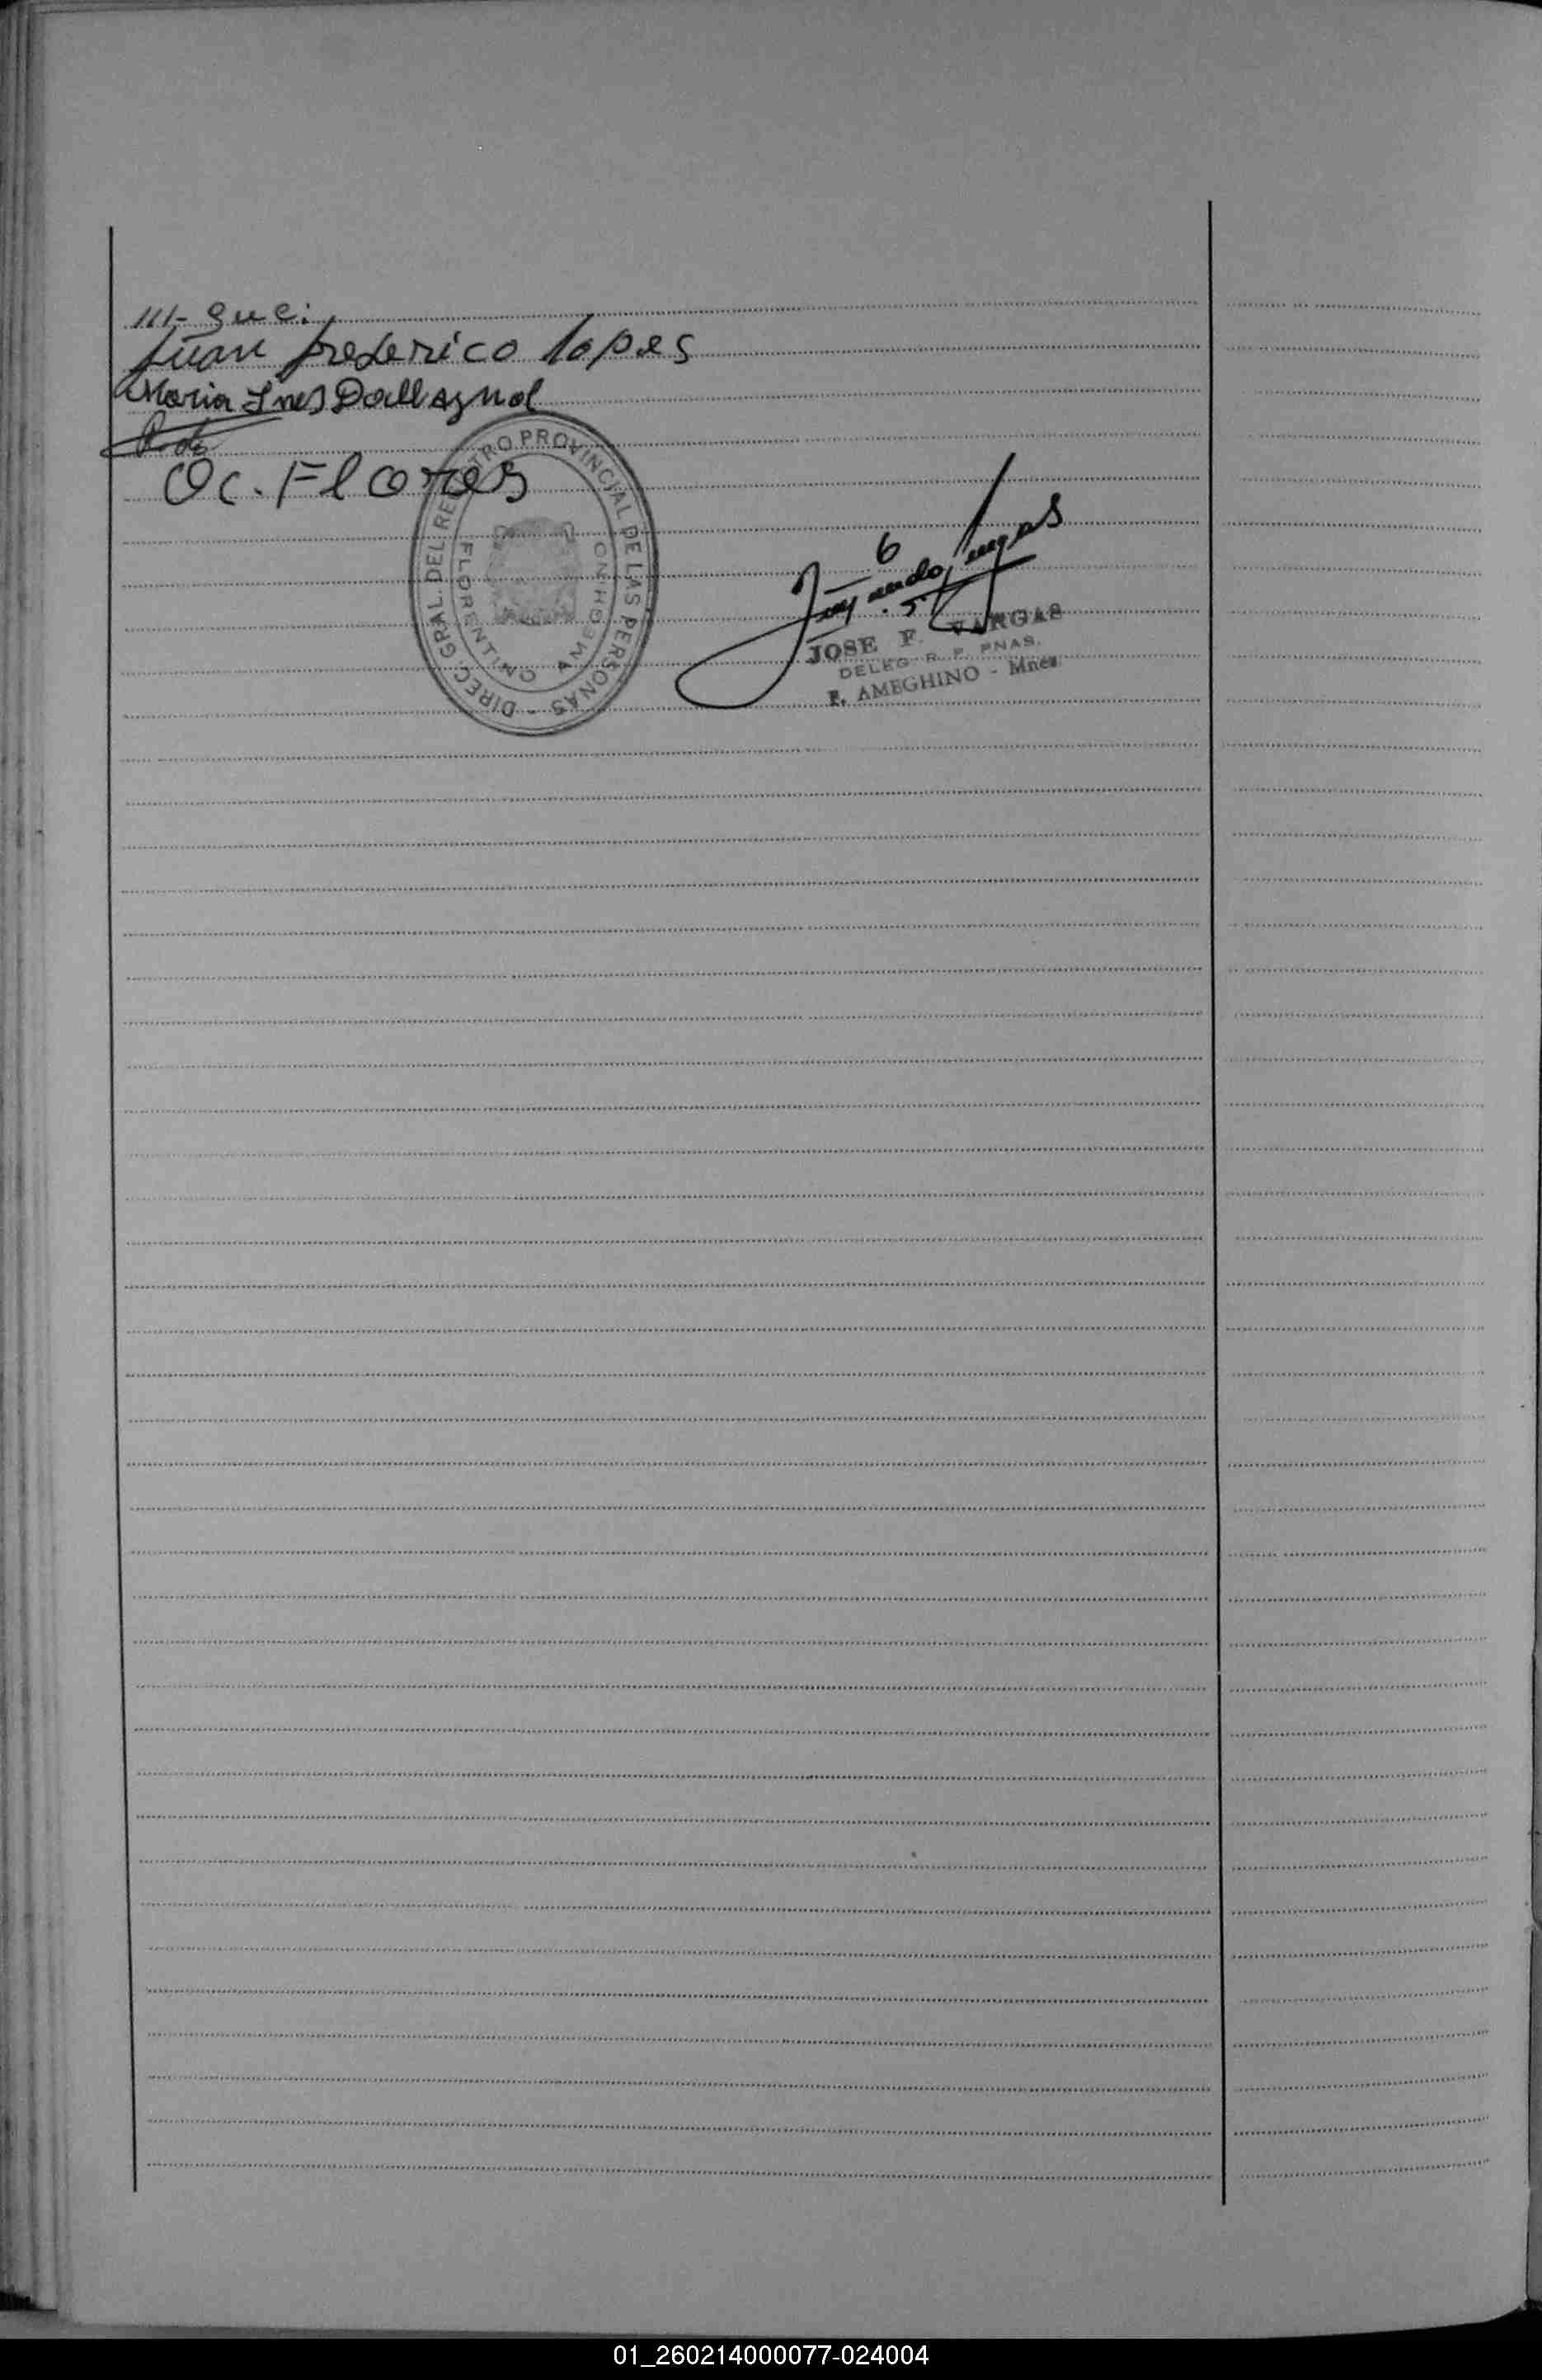 ///- gue:
Juan frederico lopes
Maria Ines Dallagnol
Oc. Flores
DIREC. GRAL. DEL REGISTRO PROVINCIAL DE LAS PERSONAS -
FLORENTINO AMEGHINO
JOSE F. VARGAS
DELEG. R. P. PNAS.
F. AMEGHINO - Mnes
01_260214000077-024004